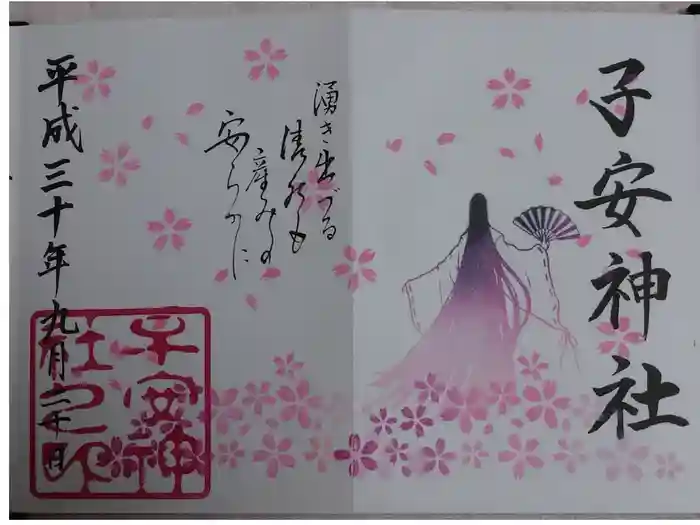 子安神社
湧き出づる
清水も
産みの
安らかに
平成三十年九月二十日
子安神
社之印